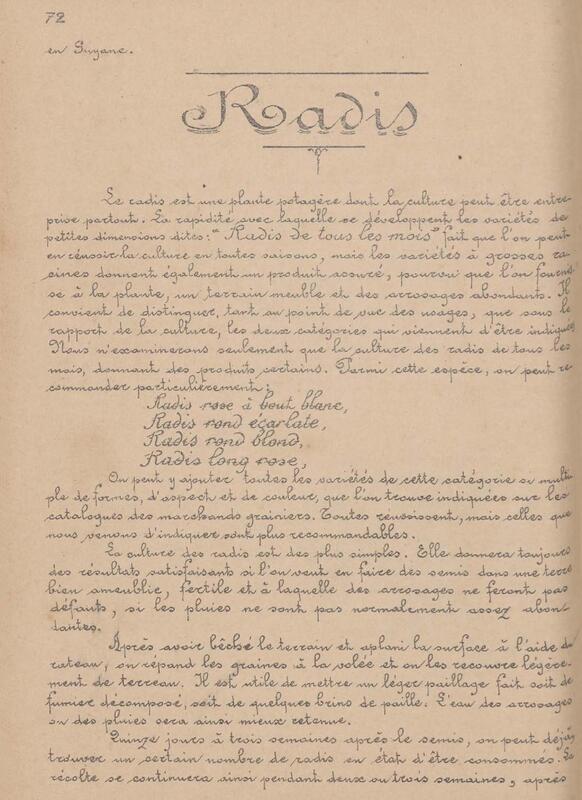 72
en Guyane.
Radis
Le radis est une plante potagère dont la culture peut être entre-
prise partout. La rapidité avec laquelle se développent les variétés de
petites dimensions dites: "Radis de tous les mois" fait que l'on peut
en réussir la culture en toutes saisons, mais les variétés à grosses ra-
cines donnent également un produit assuré, pourvu que l'on fournis
se à la plante, un terrain meuble et des arrosages abondants. Il
convient de distinguer, tant au point de vue des usages, que sous le
rapport de la culture, les deux catégories qui viennent d'être indiquées
Nous n'examinerons seulement que la culture des radis de tous les
mois, donnant des produits certains. Parmi cette espèce, on peut re-
commander particulièrement:
Radis rose à bout blanc,
Radis rond écarlate,
Radis rond blond,
Radis long rose,
On peut y ajouter toutes les variétés de cette catégorie si multi
ple de formes, d'aspect et de couleur, que l'on trouve indiquées sur les
catalogues des marchands grainiers. Toutes réussissent, mais celles que
nous venons d'indiquer sont plus recommandables.
La culture des radis est des plus simples. Elle donnera toujours
des résultats satisfaisants si l'on veut en faire des semis dans une terre
bien ameublie, fertile et à laquelle des arrosages ne feront pas
défauts, si les pluies ne sont pas normalement assez abon-
dantes.
Après avoir bêché le terrain et aplani la surface à l'aide du
rateau, on repand les graines à la volée et on les recouvre légère-
ment de terreau. Il est utile de mettre un léger paillage fait soit de
fumier décomposé, soit de quelques brins de paille. L'eau des arrosages
ou des pluies sera ainsi mieux retenue.
Quinze jours à trois semaines après le semis, on peut déjà
trouver un certain nombre de radis en état d'être consommés. La
récolte se continuera ainsi pendant deux ou trois semaines, après